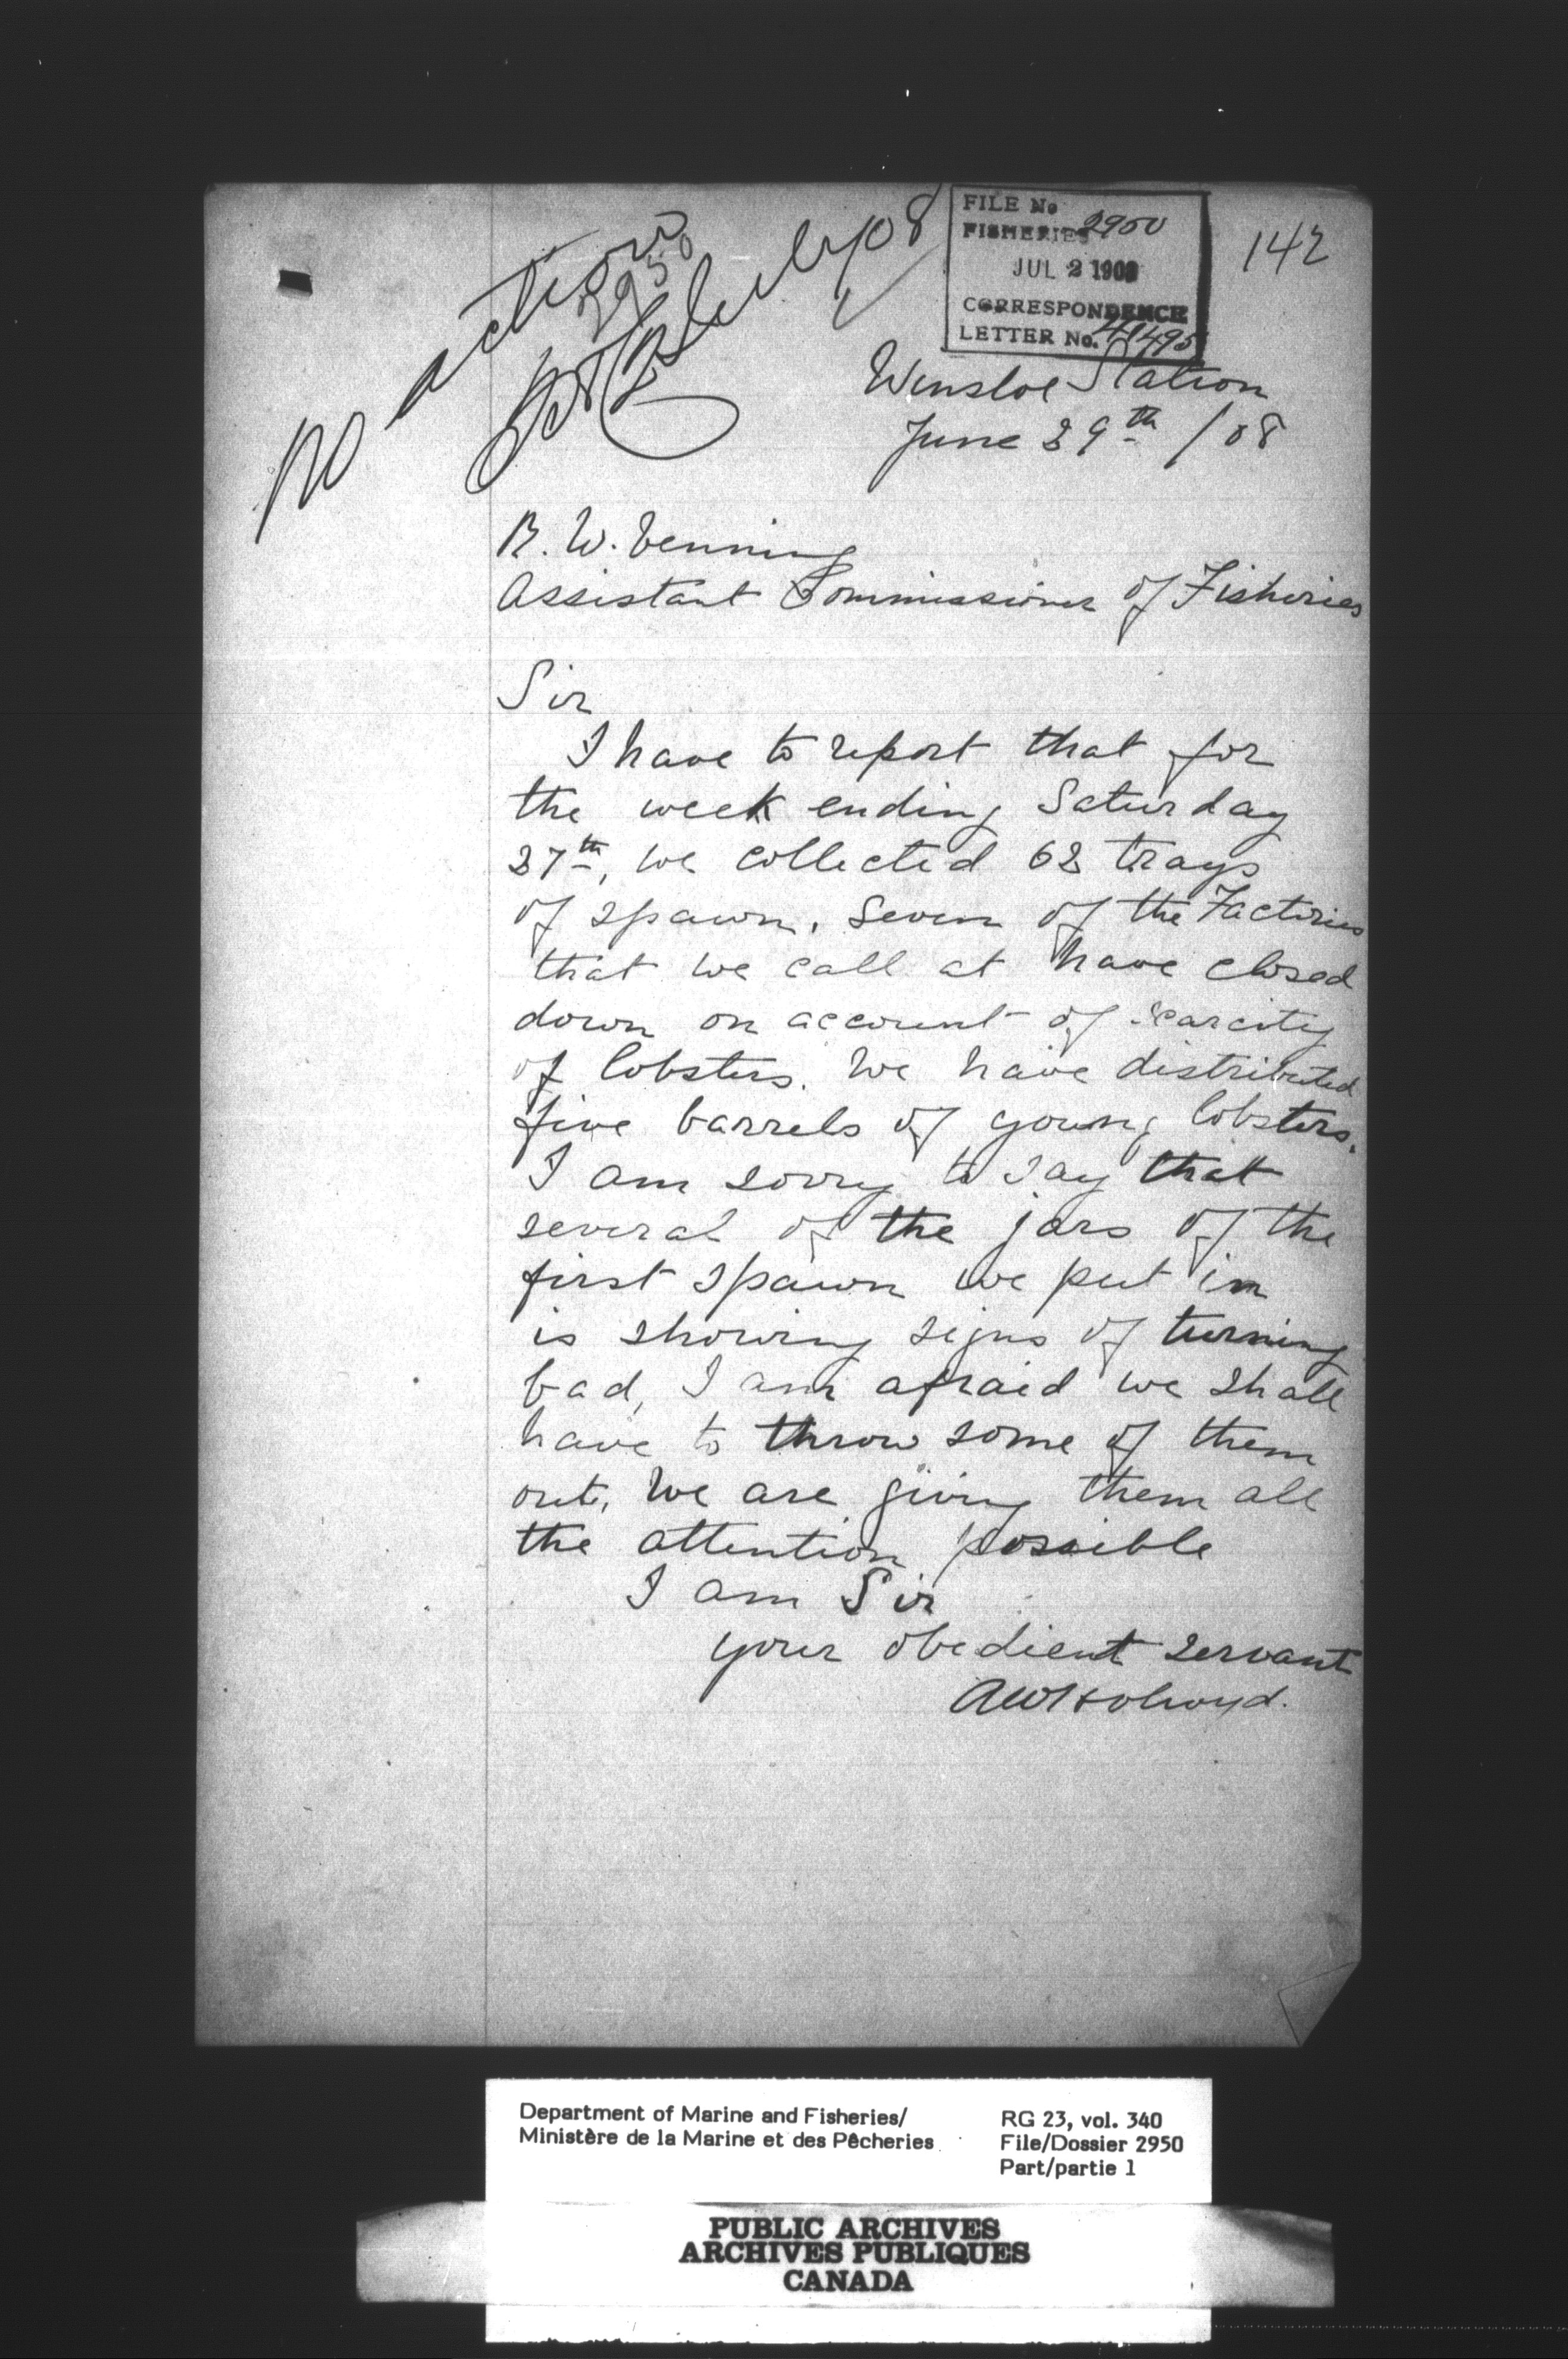 no action
2950
July/08
FILE No
FISHERIES 2950
JUL 2 1908
CORRESPONDENCE
LETTER No. 41495
142
Winsloe Station
June 29th /08
R. W. Venning
Assistant Commissioner of Fisheries
Sir
I have to report that for
the week ending Saturday
27th, we collected 62 trays
of spawn. Seven of the Factories
that we call at have closed
down on account of scarcity
of lobsters. We have distributed
five barrels of young lobsters.
I am sorry to say that
several of the jars of the
first spawn we put in
is showing signs of turning
bad, I am afraid we shall
have to throw some of them
out, We are giving them all
the attention possible
I am Sir
your obedient servant
AW Holroyd.
Department of Marine and Fisheries/
Ministère de la Marine et des Pêcheries
RG 23, vol. 340
File/Dossier 2950
Part/partie 1
PUBLIC ARCHIVES
ARCHIVES PUBLIQUES
CANADA